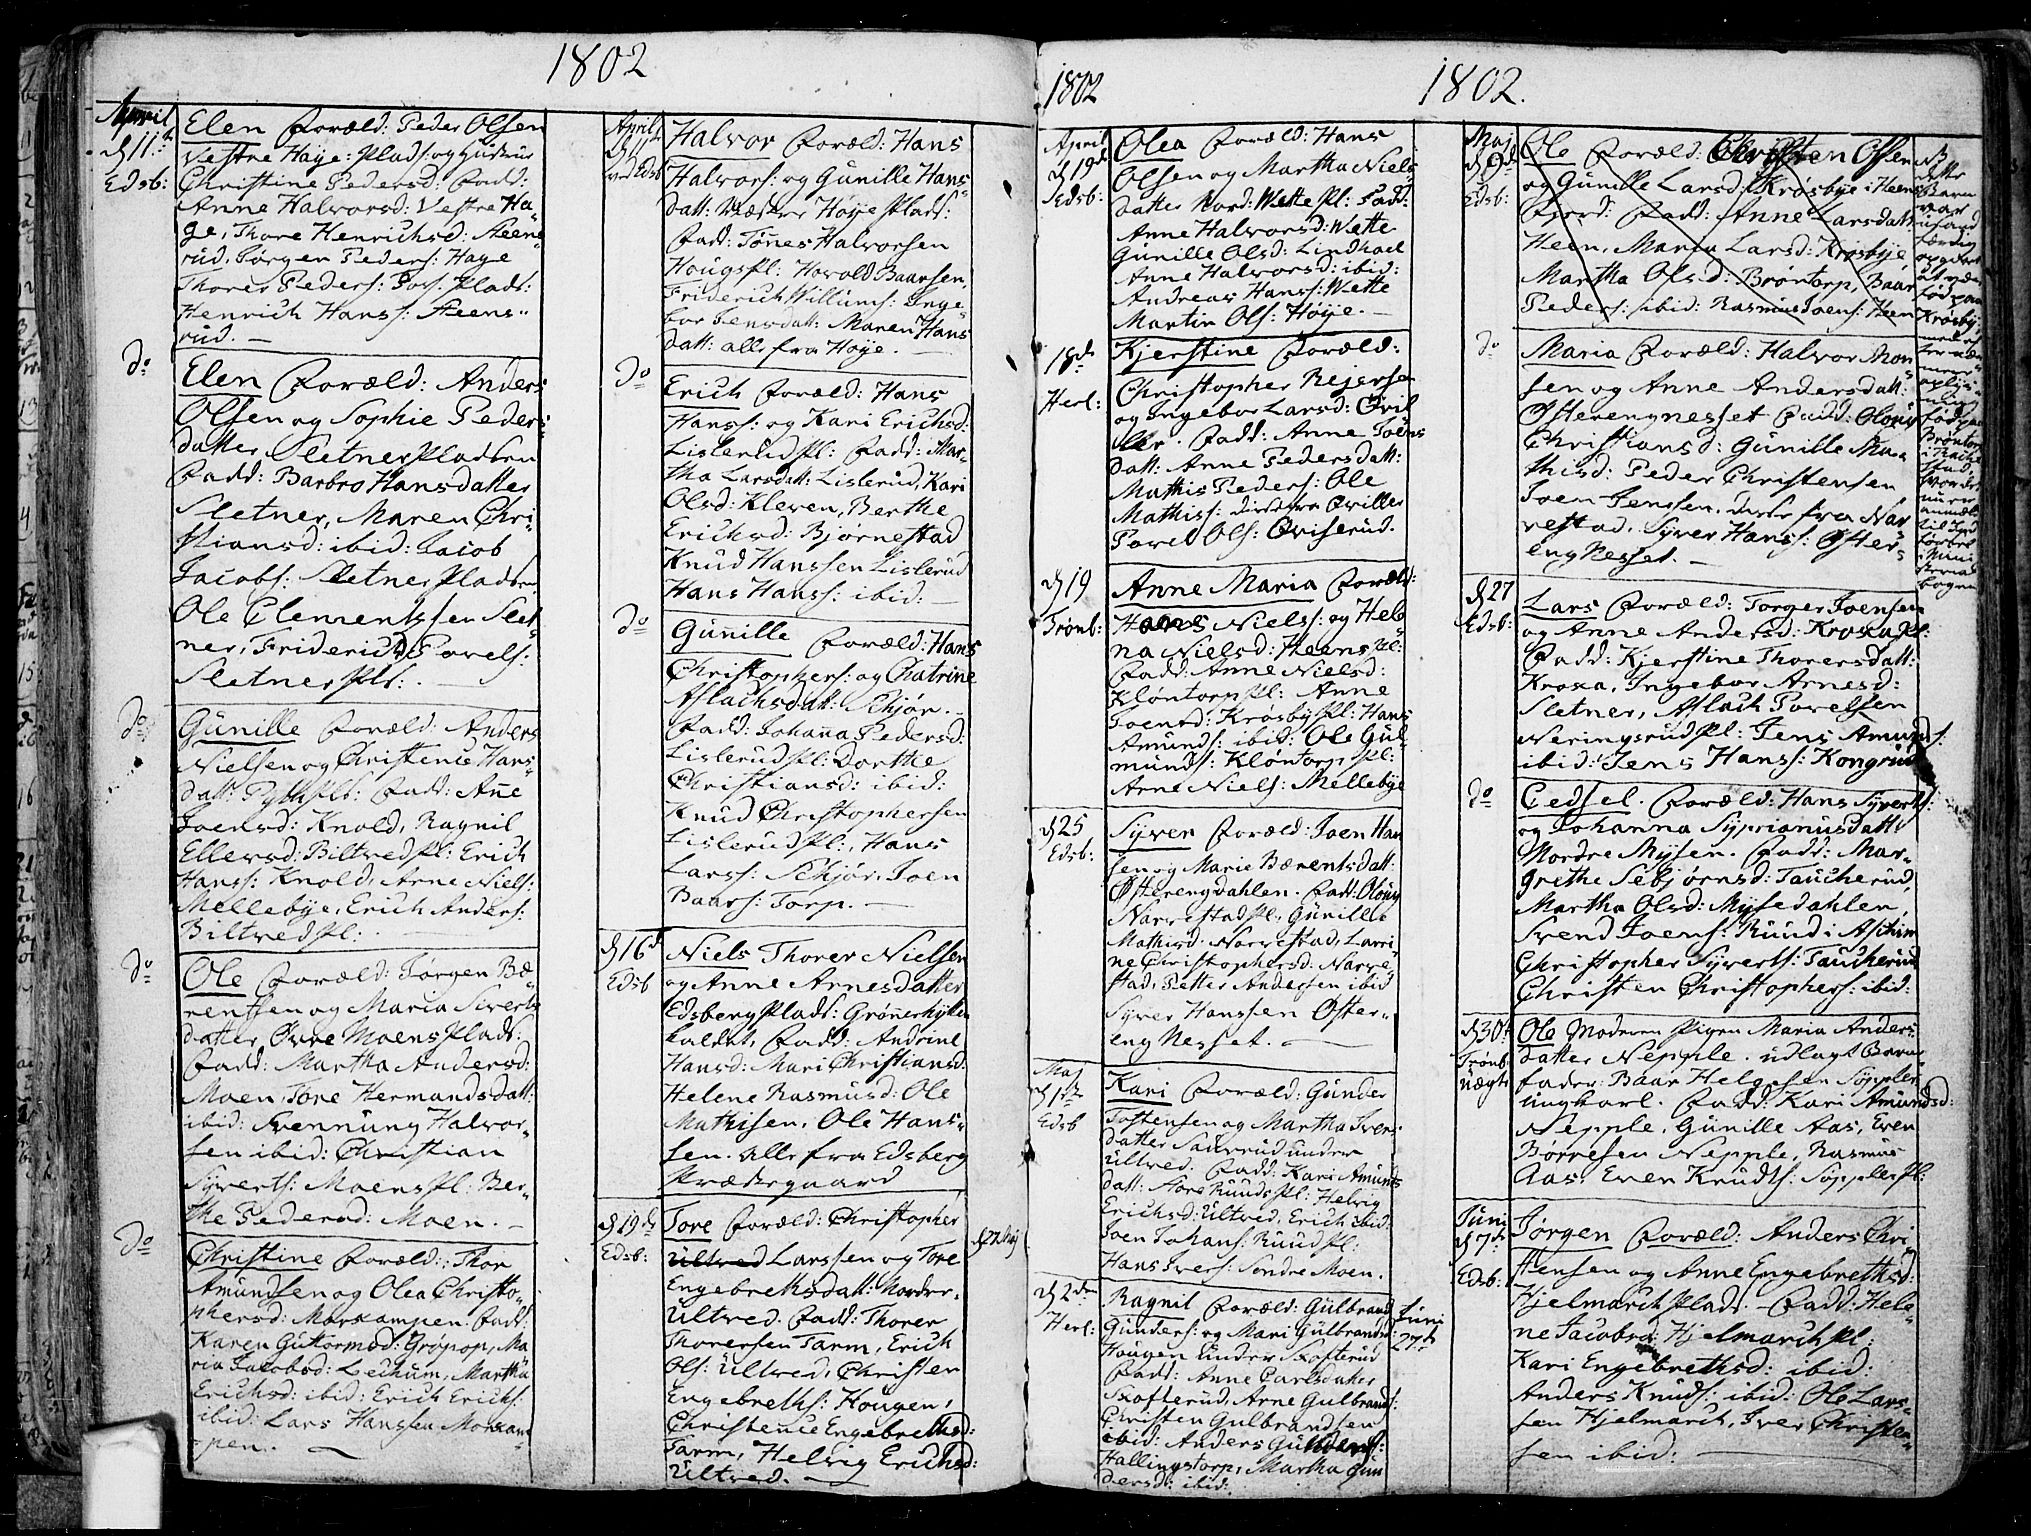 1802
April
d 11te
Edsb:
Elen Foræld: Peder Olsen
Vestre Høye: Plads: og Hustru
Christine Pedersd: Fadd:
Anne Halvorsd: Vestre Hø-
ge, Thore Henrichsd: Steens-
rud, Jørgen Peders: Høye
Thorer Peders: Fos: Plads:
Henrich Hans: Steens-
rud. —
do
Elen Foræld: Anders
Olsen og Sophie Peders-
datter, Sletner Pladsen
Fadd: Barbro Hansdatter
Sletner, Maren Chri-
stiansd: ibid: Jacob
Jacobs: Sletner Pladsen
Ole Clementssen Slet-
ner, Friderich Povels:
Sletner Pls: —
do
Gunille Foræld: Anders
Nielsen og Christence Hans-
datt: Fadd: Añe
Joensd: Knold, Ragnil
Ellersd: Biltvedpl: Erich
Hanss: Knold, Arne Niels:
Mellebye, Erich Anders:
Biltvedpl: —
do
Ole Foræld: Jørgen Bæ-
rentsen og Maria Siverts-
datter, Øvre Moens Plads:
Fadd: Martha Andersd:
Moen, Tore Hermandsdatt:
ibid: Svennung Halvor-
sen ibid: Christian
Syverts: Moenspl: Ber-
the Pedersd: Moen. —
do
Christine Foræld: Thor
Amundsen og Olea Christo-
phersd: Morskampen. Fadd:
Karen Guttormsd: Grøpop, Ma-
ria Jacobsd: Lechum, Martha
Erichsd: ibid: Erich Erichs:
ibid: Lars Hanssen Morskam-
pen. —
April
d 11te
ved Edsb
Halvor Foræld: Hans
Halvors: og Gunille Hans-
datt: Vestre Høye Plads:
Fadd: Tønes Halvorsen
Hougspl: Havold Baarsen,
Friderich Willums: Inge-
bor Jensdatt: Maren Hans
datt: alle fra Høye. —
do
Erich Foræld: Hans
Hanss: og Kari Erichsd:
Lislerudpl: Fadd: Mar-
tha Larsdatt: Lislerud, Kari
Olsd: Kleven, Berthe
Erichsd: Bjørnestad
Knud Hanssen Lislerud
Hans Hanss: ibid: —
do
Gunille Foræld: Hans
Christophers: og Chatrine
Aslachsdatt: Schjør. —
Fadd: Johaña Pedersd:
Lislerudpl: Dorthe
Christiansd: ibid:
Knud Christophersen
Lislerudpl:, Hans
Larss: Schjør, Joen
Baars: Torp. —
d 16d
Edsb
Niels Thorer Nielsen
og Anne Arnesdatter
Edsberg Plads:
kaldet, Fadd: Andrine
Hansd: Mari Christiansd:
Helene Rasmusd: Ole
Mathisen, Ole Hans-
sen. alle fra Edsberg
Prædstegaard
d 19de
Edsb:
Tore Foræld: Christopher
Ultved Larssen og Tore
Engebrethsdatt: Nordre-
Ultved. Fadd: Thorer
Thorersen Tarm, Erich
Ols: Ultved, Christen
Engebreths: Hougen,
Christence Engebrethsd:
Tarm, Helvig Erichsd:
Ultved. —
d 27 Maj
1802
1802.
April
d 19d
Edsb:
Olea Foræld: Hans
Olsen og Martha Niels-
datter Nord: Wette pl: Fadd:
Anne Halvorsd: Wette
Gunille Olsd: Lindhoel
Anne Halvorsd: ibid:
Andreas Hanss: Wette
Martin Ols: Høye. —
18de
Herl:
Kjerstine Foræld:
Christopher Rejersen
og Ingebor Larsd: Qvil
ler. Fadd: Anne Joens
datt: Anne Pedersdatt:
Mathis Peders: Ole
Mathiss: disse fra Qviller
Povel Ols: Qviserud.
d 19
Trønb:
Anne Maria Foræld:
Hans Nielss: og Hele-
na Nielsd: Heenspl:
Fadd: Anne Nielsd:
Kløntorppl: Anne
Joensd: Krøsbypl: Hans
Amunds: ibid: Ole Gul-
munds: Kløntorp pl:
Arne Niels: Mellebye
d 25
Edsb:
Syver Foræld: Joen Han
sen og Marie Bærentsdatt:
Østerengdahlen. Fadd: Oloug
Narrestadpl: Gunille
Mathisd: Narrestad, Lavri-
ne Christophersd: Narre-
stad, Petter Andersen ibid
Syver Hanssen Øster-
eng Nesset. —
Maj
d 1ste
Edsb
Kari Foræld: Gunder
Tostensen og Martha Ivers
datter Sauerud under
Ultved. Fadd: Kari Amunds
datt: Store Ruudspl: Helvig
Erichsd: Ultved, Erich ibid:
Joen Johans: Ruudpl:
Hans Ivers: Søndre Moen.
d 2den
Herl:
Ragnil Foræld: Gulbrand
Gunders: og Mari Gulbrandsd:
Hougen under Skofterud
Fadd: Anne Carlsdatter
Skofterud, Arne Gulbrands:
Christen Gulbrandsen
ibid: Anders Gunders:
Hallingstorp, Martha Gun
dersd: ibid:
Juni
27de
Maj
d 9de
Edsb:
Ole Foræld: Christen Olsen
og Gunille Larsd: Krøsbye i Heens
Fjord: Fadd: Anne Larsdatt:
Heen, Maria Larsd: Krøsbye
Martha Olsd: Brøntorp, Baar
Peders: ibid: Rasmus Joens: Heen
NB
dette
Barn
var
ufærdig
født paa
Krøsby
født paa
Brøntorp
i Rache
stad
hvor det
anmældt
til Ind
førsel
i Mini
sterial
bogen
do
Maria Foræld: Halvor Mon-
sen og Anne Andersdatt:
Østerengnesset Fadd: Oloug
Christiansd: Gunille Ma-
thisd: Peder Christensen
Joen Jenssen, disse fra Nar-
restad, Syver Hans: Øster-
eng Nesset. —
d 27
Edsb:
Lars Foræld: Torger Joensen
og Anne Andersd: Kroxapl:
Fadd: Kjerstine Thorersdatt:
Kroxa, Ingebor Arnesd:
Sletner, Aslach Povelsen
Neringsrudpl: Jens Amunds:
ibid: Jens Hans: Kongrud
do
Gedsel. Foræld: Hans Syverts:
og Johanna Syprianusdatt:
Nordre Mysen. Fadd: Mar-
grethe Sebjørnsd: Taucherud,
Martha Olsd: Mysedahlen,
Svend Joens: Ruud i Aschim
Christopher Syverts: Taucherud
Christen Christophers: ibid:
d 30t
Trønb:
uægte
Ole Moderen Pigen Maria Anders
datter Nepple. udlagt Barne
fader: Baar Helgesen Søppler
ungkarl. Fadd: Kari Amundsd:
Nepple, Gunille Aas, Even
Børresen Nepple, Rasmus
Aas, Even Knuds: Søpplerpl:
Juni
d 7de
Edsb:
Jørgen Foræld: Anders Chri-
stensen og Anne Engebrethsd:
Hjelmarch Plads — Fadd: Hele-
ne Jacobsd: Hjelmarchpl:
Kari Engebrethsd: ibid:
Anders Knuds: ibid: Ole Lars-
sen Hjelmarch, Iver Christen-
sen ibid: —